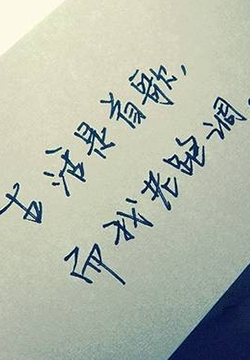 生活是首歌,
而我老跑调.